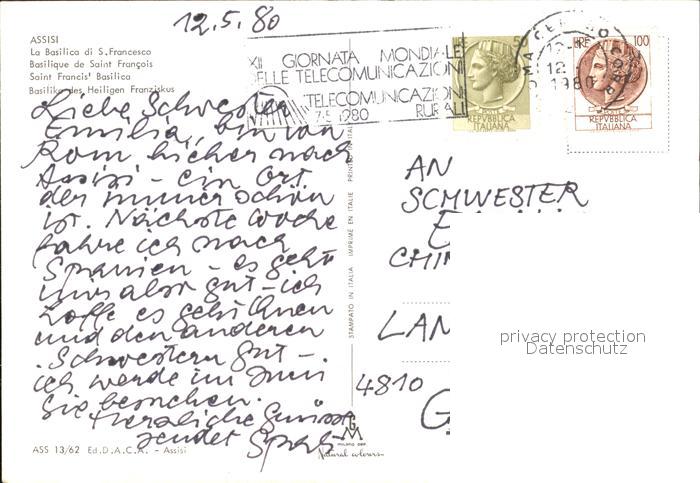 12.5.80
ASSISI
La Basilica di S. Francesco
Basilique de Saint François
Saint Francis' Basilica
Basilika des Heiligen Franziskus
XII GIORNATA MONDIALE
DELLE TELECOMUNICAZIONI
TELECOMUNICAZIONI
RURALI
1980
LIRE 100
REPVBBLICA
ITALIANA
REPVBBLICA
ITALIANA
12
1980
Liebe Schwester
Emilia, bin von
Rom hieher nach
Assisi - ein Ort
der immer schön
ist. Nächste Woche
fahre ich nach
Spanien - es geht
mir also gut - ich
hoffe es geht Ihnen
und den anderen
Schwestern gut -.
ich werde im Juni
Sie besuchen.
Herzliche Grüsse
sendet
STAMPATO IN ITALIA IMPRIMÉ EN ITALIE PRINTED IN
AN
SCHWESTER
E
CHI
LAN
4810
G
privacy protection
Datenschutz
ASS 13/62 Ed. D.A.C.A. - Assisi
Natural colours